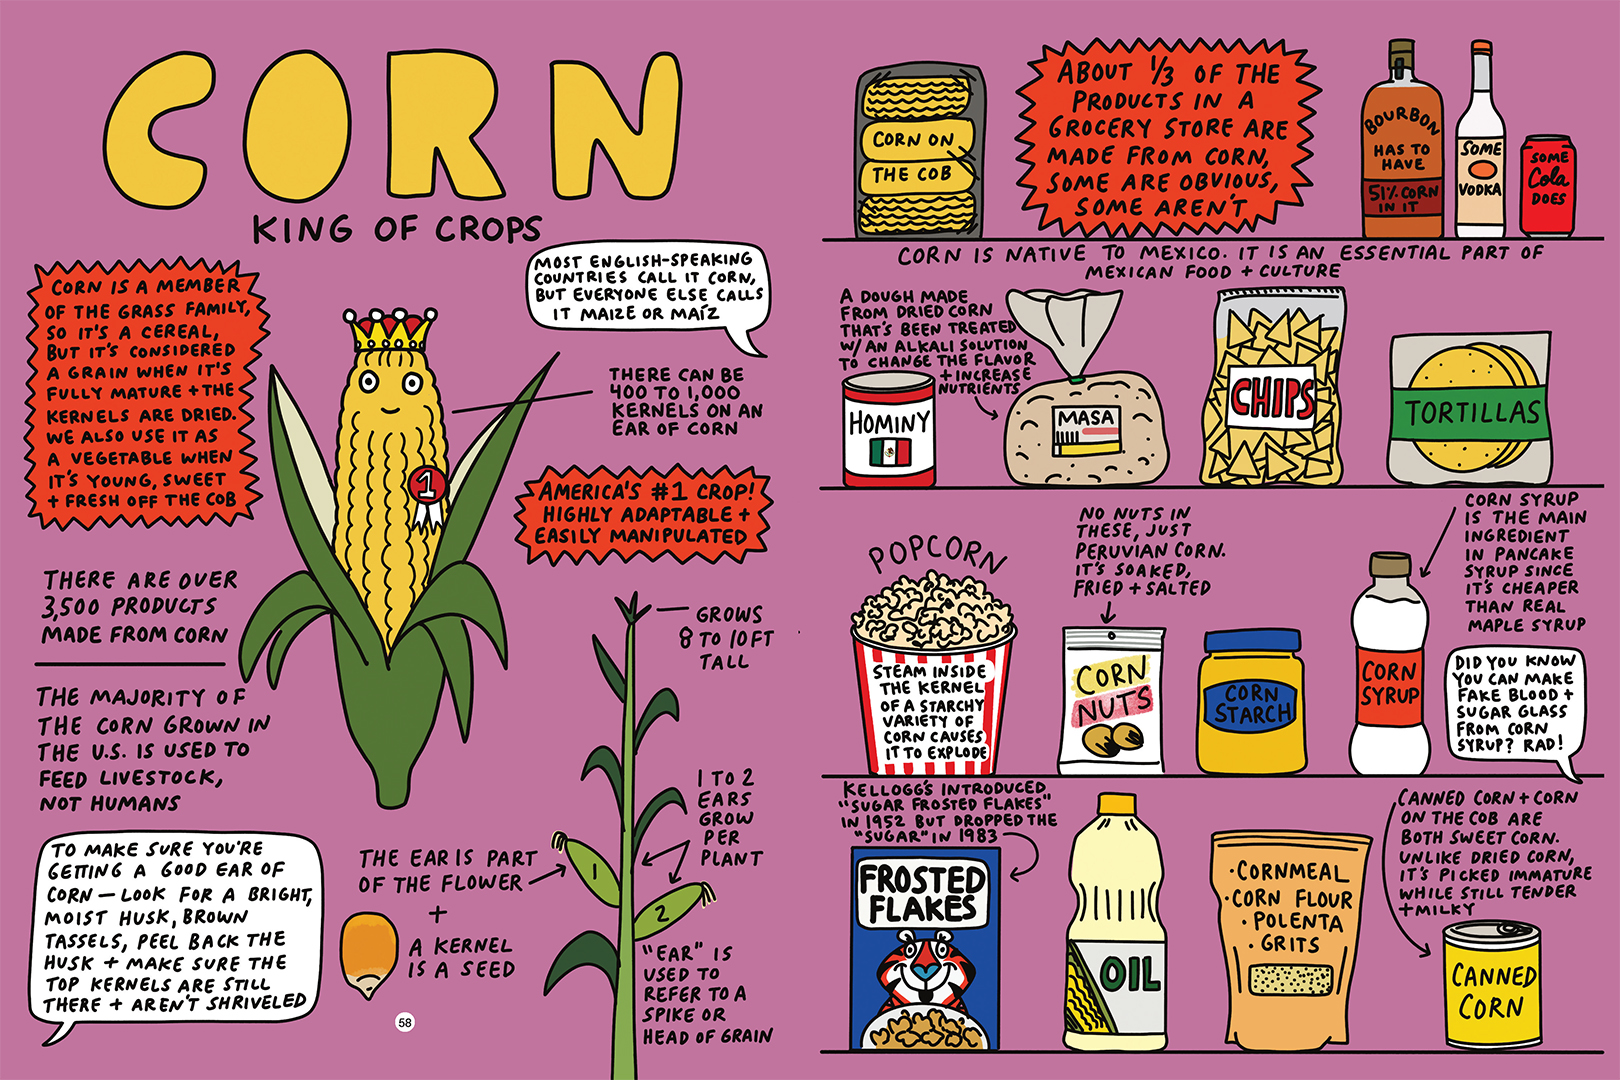 CORN
KING OF CROPS
CORN IS A MEMBER
OF THE GRASS FAMILY,
SO IT'S A CEREAL,
BUT IT'S CONSIDERED
A GRAIN WHEN IT'S
FULLY MATURE + THE
KERNELS ARE DRIED.
WE ALSO USE IT AS
A VEGETABLE WHEN
IT'S YOUNG, SWEET
+ FRESH OFF THE COB
MOST ENGLISH-SPEAKING
COUNTRIES CALL IT CORN,
BUT EVERYONE ELSE CALLS
IT MAIZE OR MAÍZ
THERE CAN BE
400 TO 1,000
KERNELS ON AN
EAR OF CORN
1
AMERICA'S #1 CROP!
HIGHLY ADAPTABLE +
EASILY MANIPULATED
THERE ARE OVER
3,500 PRODUCTS
MADE FROM CORN
THE MAJORITY OF
THE CORN GROWN IN
THE U.S. IS USED TO
FEED LIVESTOCK,
NOT HUMANS
GROWS
8 TO 10 FT
TALL
1 TO 2
EARS
GROW
PER
PLANT
1
2
TO MAKE SURE YOU'RE
GETTING A GOOD EAR OF
CORN — LOOK FOR A BRIGHT,
MOIST HUSK, BROWN
TASSELS, PEEL BACK THE
HUSK + MAKE SURE THE
TOP KERNELS ARE STILL
THERE + AREN'T SHRIVELED
THE EAR IS PART
OF THE FLOWER
+
A KERNEL
IS A SEED
"EAR" IS
USED TO
REFER TO A
SPIKE OR
HEAD OF GRAIN
58
CORN ON
THE COB
ABOUT 1/3 OF THE
PRODUCTS IN A
GROCERY STORE ARE
MADE FROM CORN,
SOME ARE OBVIOUS,
SOME AREN'T
BOURBON
HAS TO
HAVE
51% CORN
IN IT
SOME
VODKA
SOME
Cola
DOES
CORN IS NATIVE TO MEXICO. IT IS AN ESSENTIAL PART OF
MEXICAN FOOD + CULTURE
A DOUGH MADE
FROM DRIED CORN
THAT'S BEEN TREATED
W/ AN ALKALI SOLUTION
TO CHANGE THE FLAVOR
+ INCREASE
NUTRIENTS
HOMINY
MASA
CHIPS
TORTILLAS
POPCORN
STEAM INSIDE
THE KERNEL
OF A STARCHY
VARIETY OF
CORN CAUSES
IT TO EXPLODE
NO NUTS IN
THESE, JUST
PERUVIAN CORN.
IT'S SOAKED,
FRIED + SALTED
CORN
NUTS
CORN
STARCH
CORN
SYRUP
CORN SYRUP
IS THE MAIN
INGREDIENT
IN PANCAKE
SYRUP SINCE
IT'S CHEAPER
THAN REAL
MAPLE SYRUP
DID YOU KNOW
YOU CAN MAKE
FAKE BLOOD +
SUGAR GLASS
FROM CORN
SYRUP? RAD!
KELLOGG'S INTRODUCED
"SUGAR FROSTED FLAKES"
IN 1952 BUT DROPPED THE
"SUGAR" IN 1983
FROSTED
FLAKES
OIL
• CORNMEAL
• CORN FLOUR
• POLENTA
• GRITS
CANNED CORN + CORN
ON THE COB ARE
BOTH SWEET CORN.
UNLIKE DRIED CORN,
IT'S PICKED IMMATURE
WHILE STILL TENDER
+ MILKY
CANNED
CORN